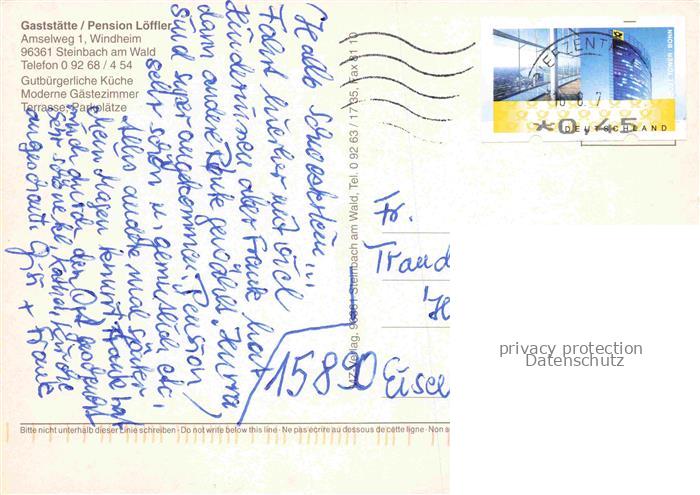 Gaststätte / Pension Löffler
Amselweg 1, Windheim
96361 Steinbach am Wald
Telefon 0 92 68 / 4 54
Gutbürgerliche Küche
Moderne Gästezimmer
Terrasse, Parkplätze
Hallo Schwesterlein...
Fahrt hierher mit viel
Hindernissen aber Frank hat
dann andere Route gewählt. Hurra
sind super angekommen. Pension
sehr schön u. gemütlich etc.
Alles andere mal später.
Mein Magen knurrt. Frank hat
mich durch den Ort
sehr schöne kathol. Kirche
angeschaut. + Frank
MZ-Verlag, 96361 Steinbach am Wald, Tel. 0 92 63 / 17 35, Fax 81 10
POST TOWER BONN
DEUTSCHLAND
*0,45
Fr.
15890 Eisen
privacy protection
Datenschutz
Bitte nicht unterhalb dieser Linie schreiben · Do not write below this line · Ne pas ecrire au dessous de cette ligne · Non s